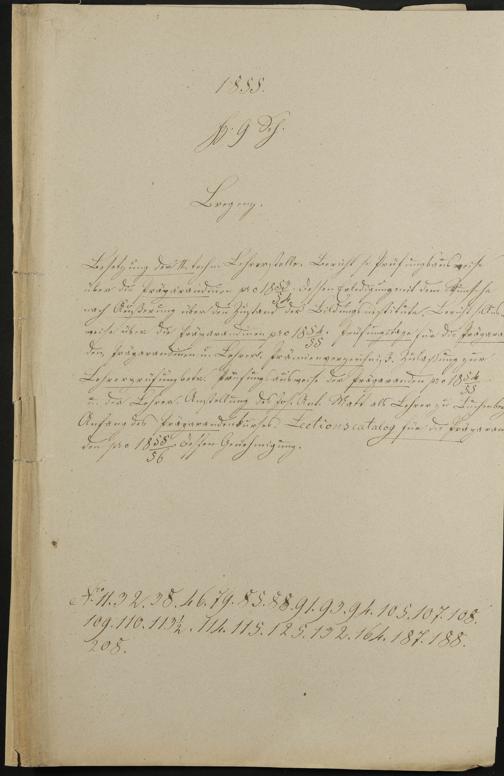 1855.
9 Sch.
Bregenz.
Besetzung der II. techn. Lehrerstelle. Bericht u. Prüfungsausweise
über die Präparandinen pro 1853/54. dessen Erledigung mit dem Wunsche
nach Äußerung über den Zustand der Bildungsinstitute. Bericht u. Aus
weise über die Präparandinen pro 1854/55. Prüfungstage für die Präpara
den, Präparandinen u. Lehrer. Prämienverzeichniß. Zulassung zur
Lehrerprüfung betr. Prüfungsausweise der Präparanden pro 1854/55
u. der Lehrer. Anstellung des Jos. Ant. Matt als Lehrer zu
Anfang des Präparandenkurses. Lectionscatalog für die Präparan
den pro 1855/56 dessen Genehmigung.
No. 11. 32. 38. 46. 79. 85. 88. 91. 93. 94. 105. 107. 108.
109. 110. 113½. 114. 115. 125. 132. 164. 187. 188.
208.